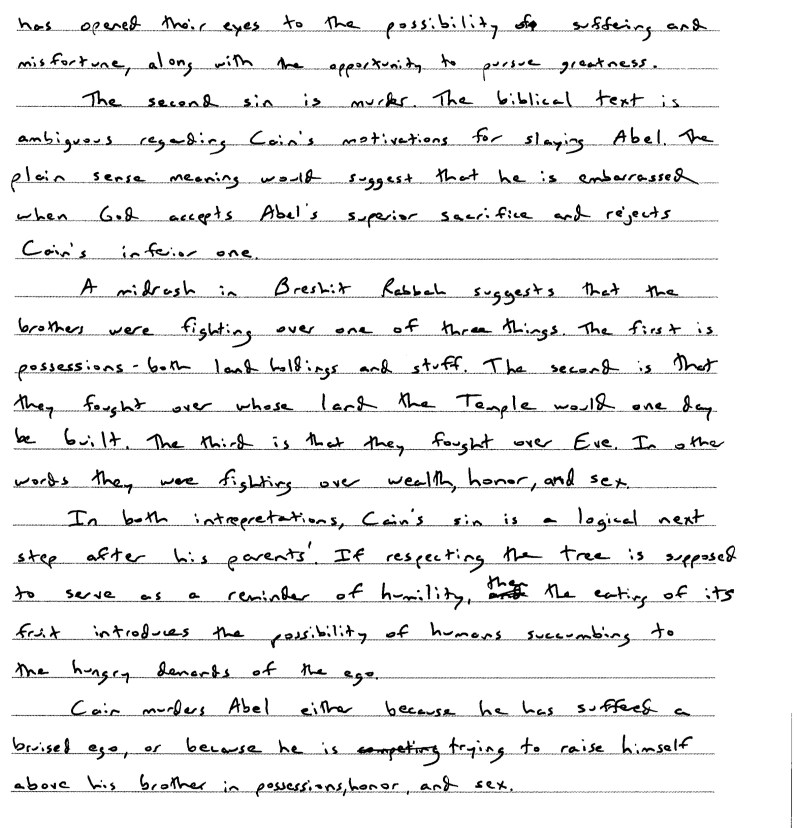 has opened their eyes to the possibility of suffeing and
misfortune, along with the opportunity to pursue greatness.
The second sin is murder. The biblical text is
ambiguous regarding Cain's motivations for slaying Abel. The
plain sense meaning would suggest that he is embarrassed
when God accepts Abel's superior sacrifice and rejects
Cain's inferior one.
A midrash in Breshit Rabbah suggests that the
brothers were fighting over one of three things. The first is
possessions - both land holdings and stuff. The second is that
they fought over whose land the Temple would one day
be built. The third is that they fought over Eve. In other
words they were fighting over wealth, honor, and sex.
In both intrepretations, Cain's sin is a logical next
step after his parents'. If respecting the tree is supposed
to serve as a reminder of humility, then the eating of its
fruit introduces the possibility of humans succumbing to
the hungry demands of the ego.
Cain murders Abel either because he has suffered a
bruised ego, or because he is competing trying to raise himself
above his brother in possessions, honor, and sex.